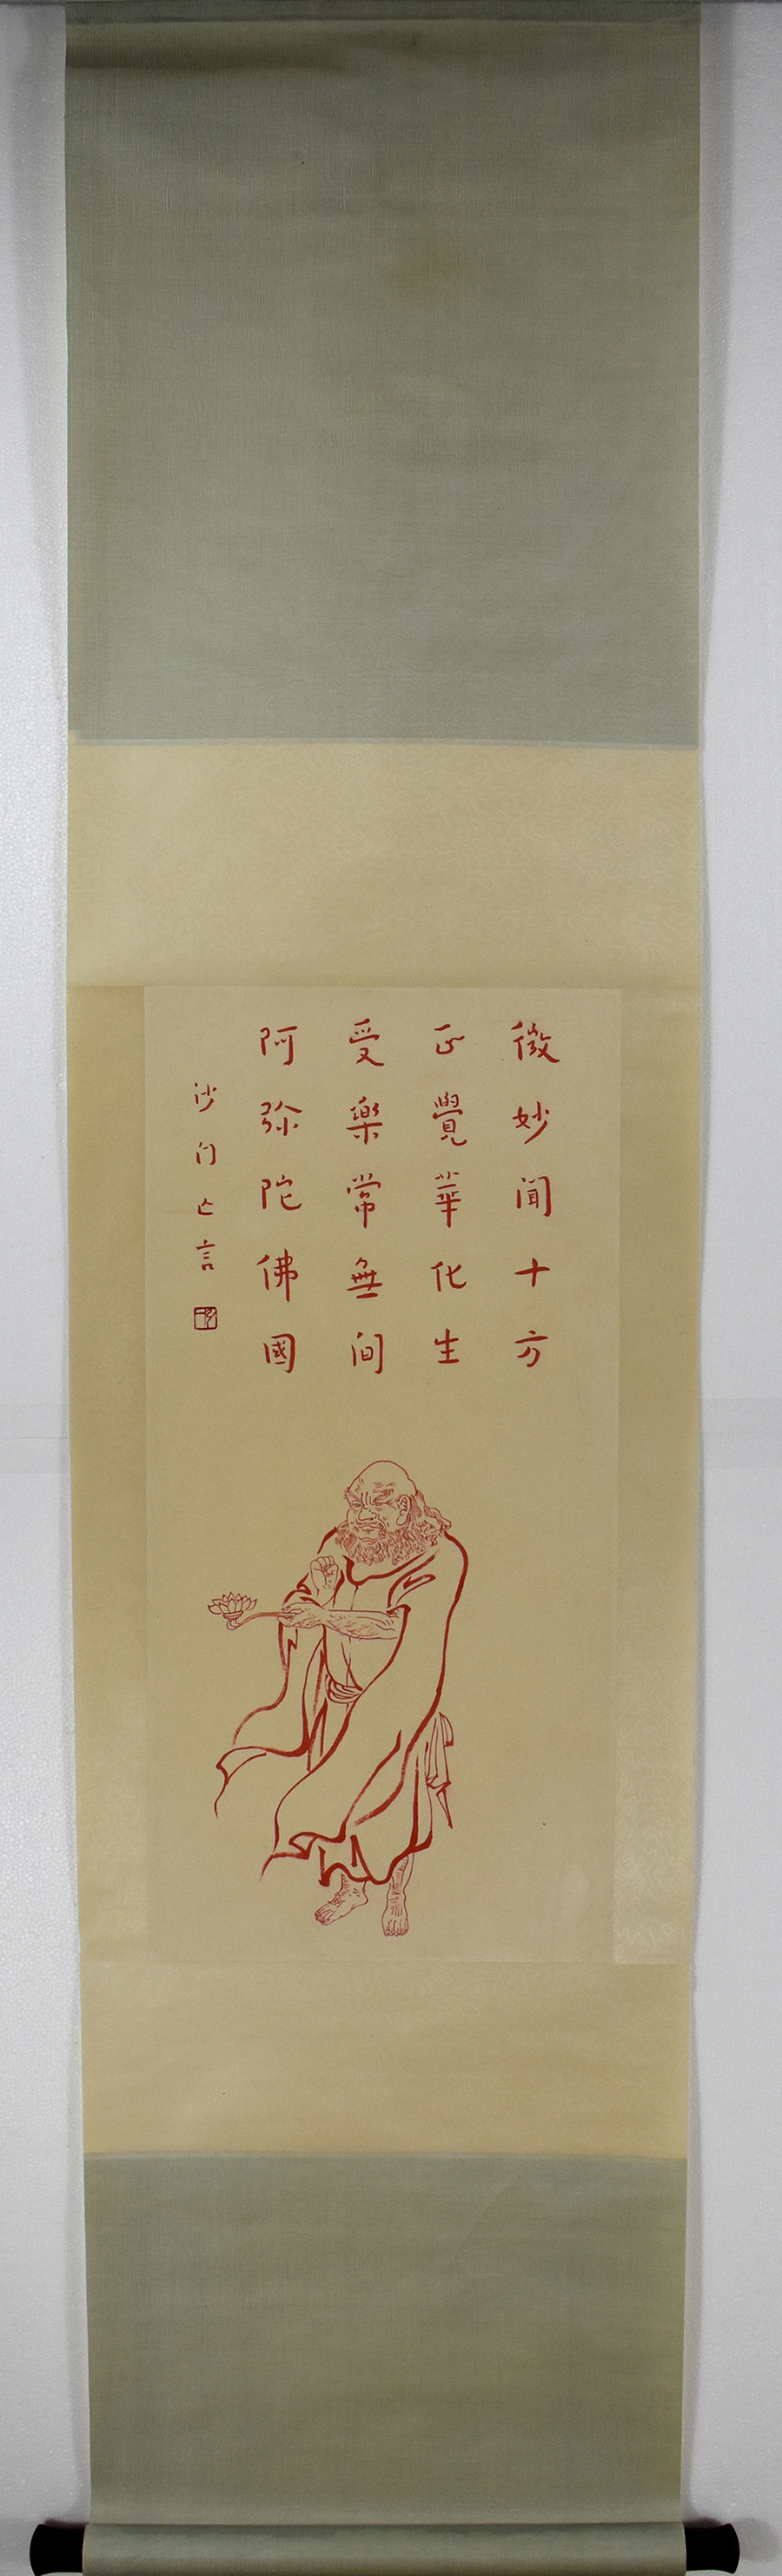 微妙聞十方
正覺華化生
受樂常無间
阿弥陀佛國
沙门亡言